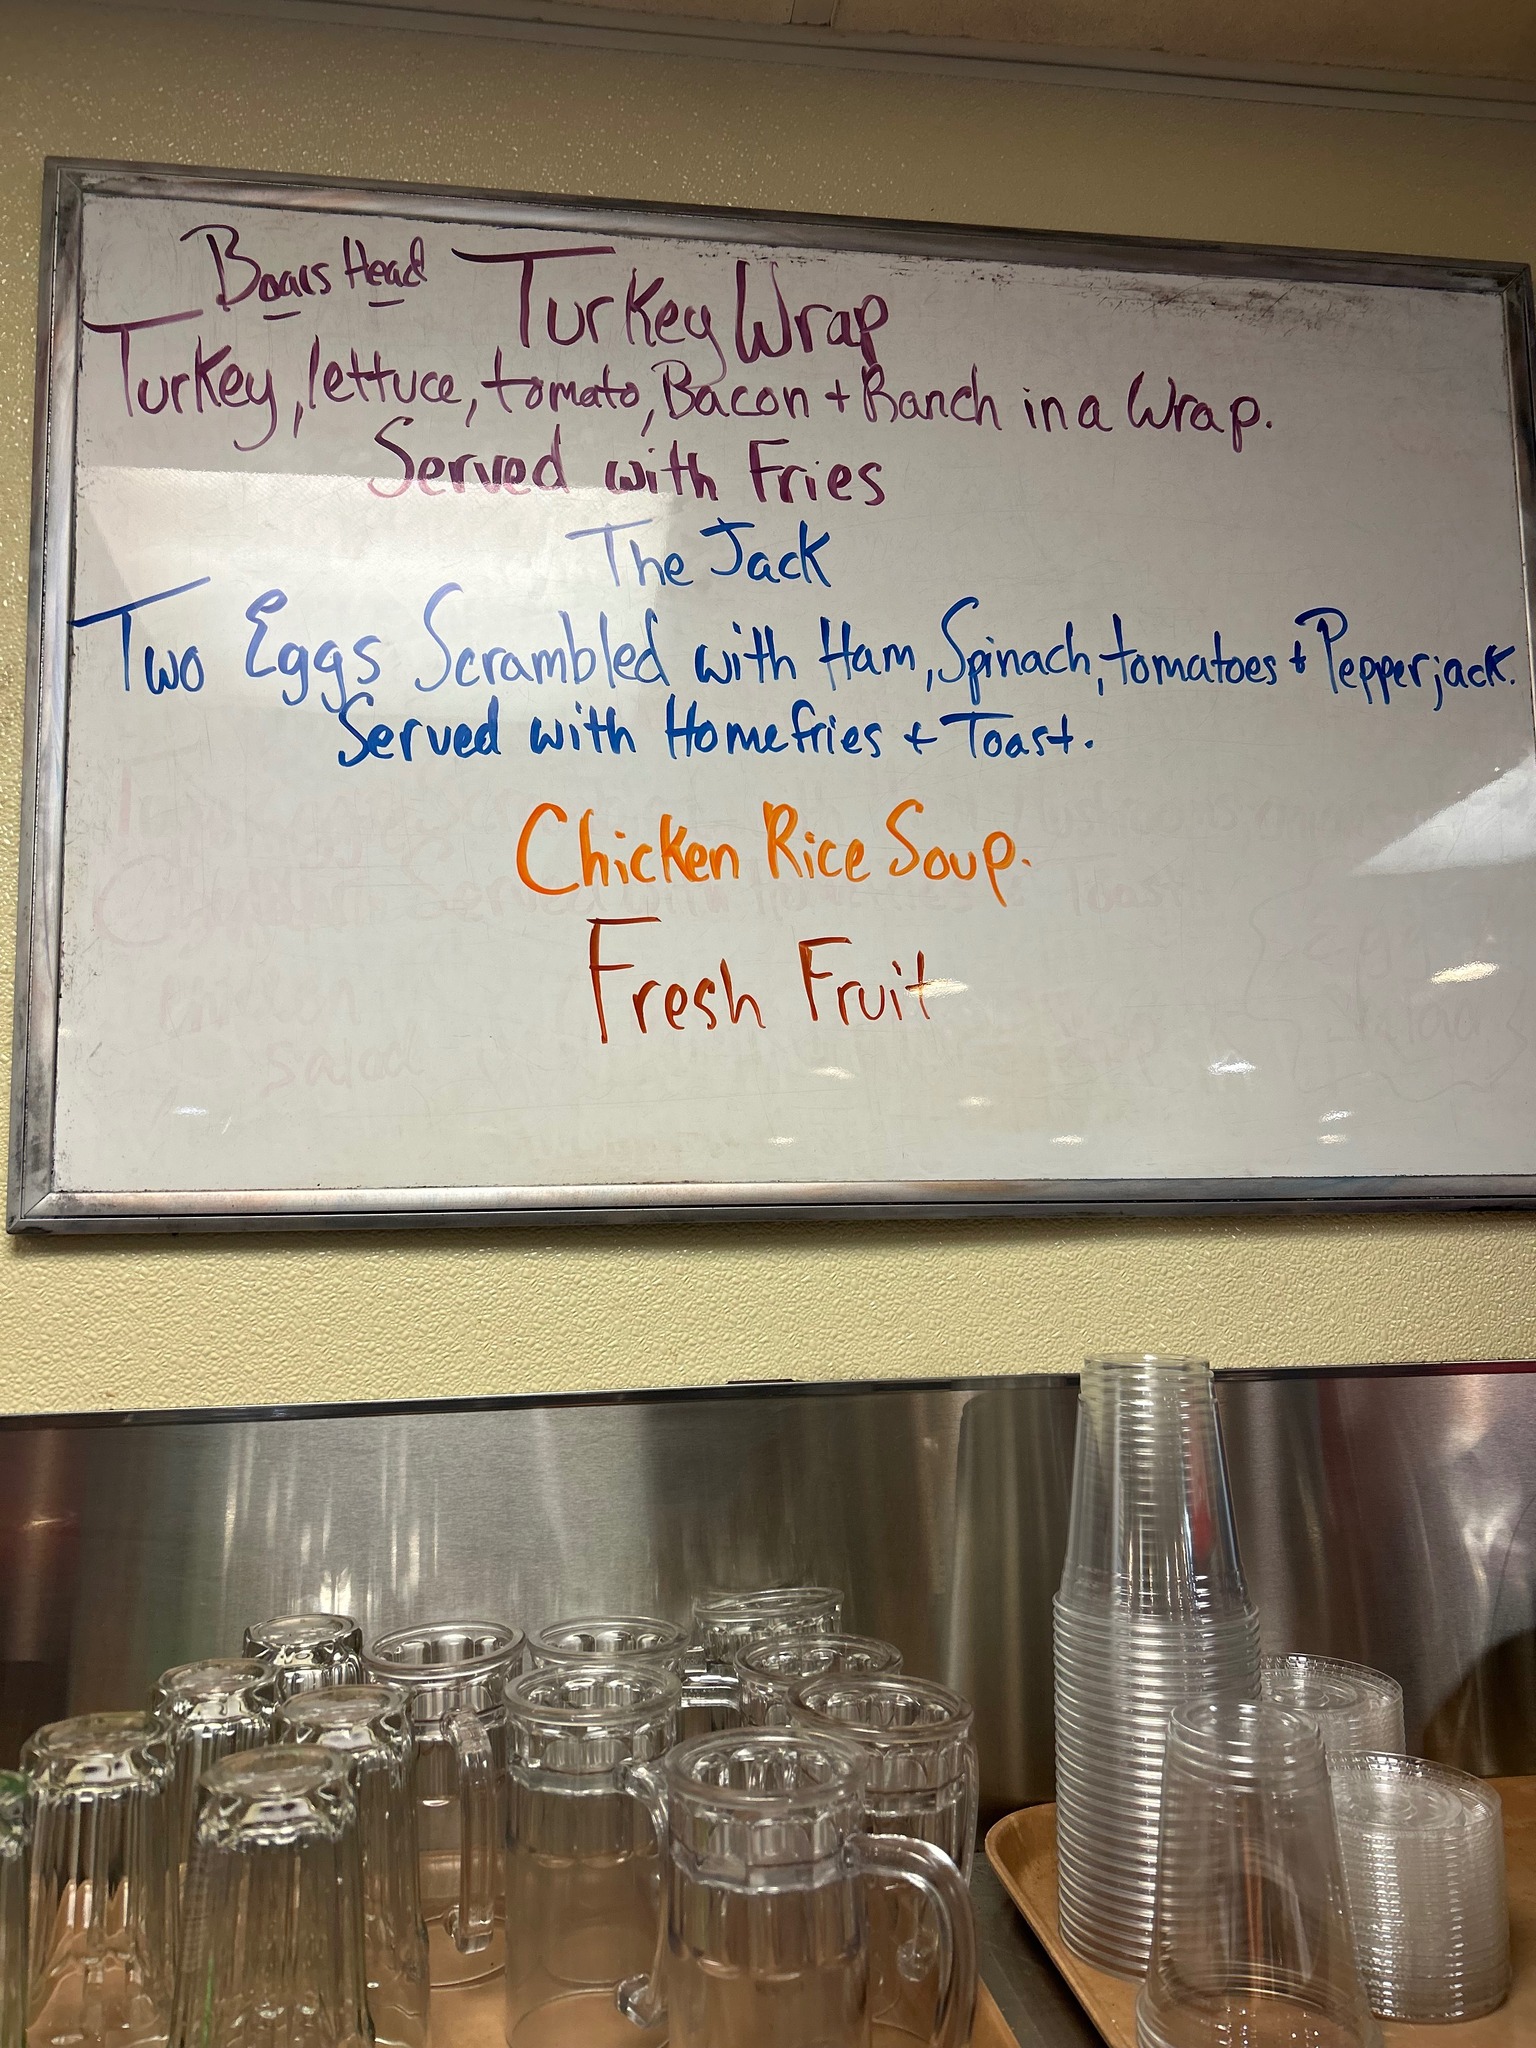 Boars Head Turkey Wrap
Turkey, lettuce, tomato, Bacon + Ranch in a Wrap.
Served with Fries
The Jack
Two Eggs Scrambled with Ham, Spinach, tomatoes + Pepperjack.
Served with Homefries + Toast.
Chicken Rice Soup.
Fresh Fruit
salad